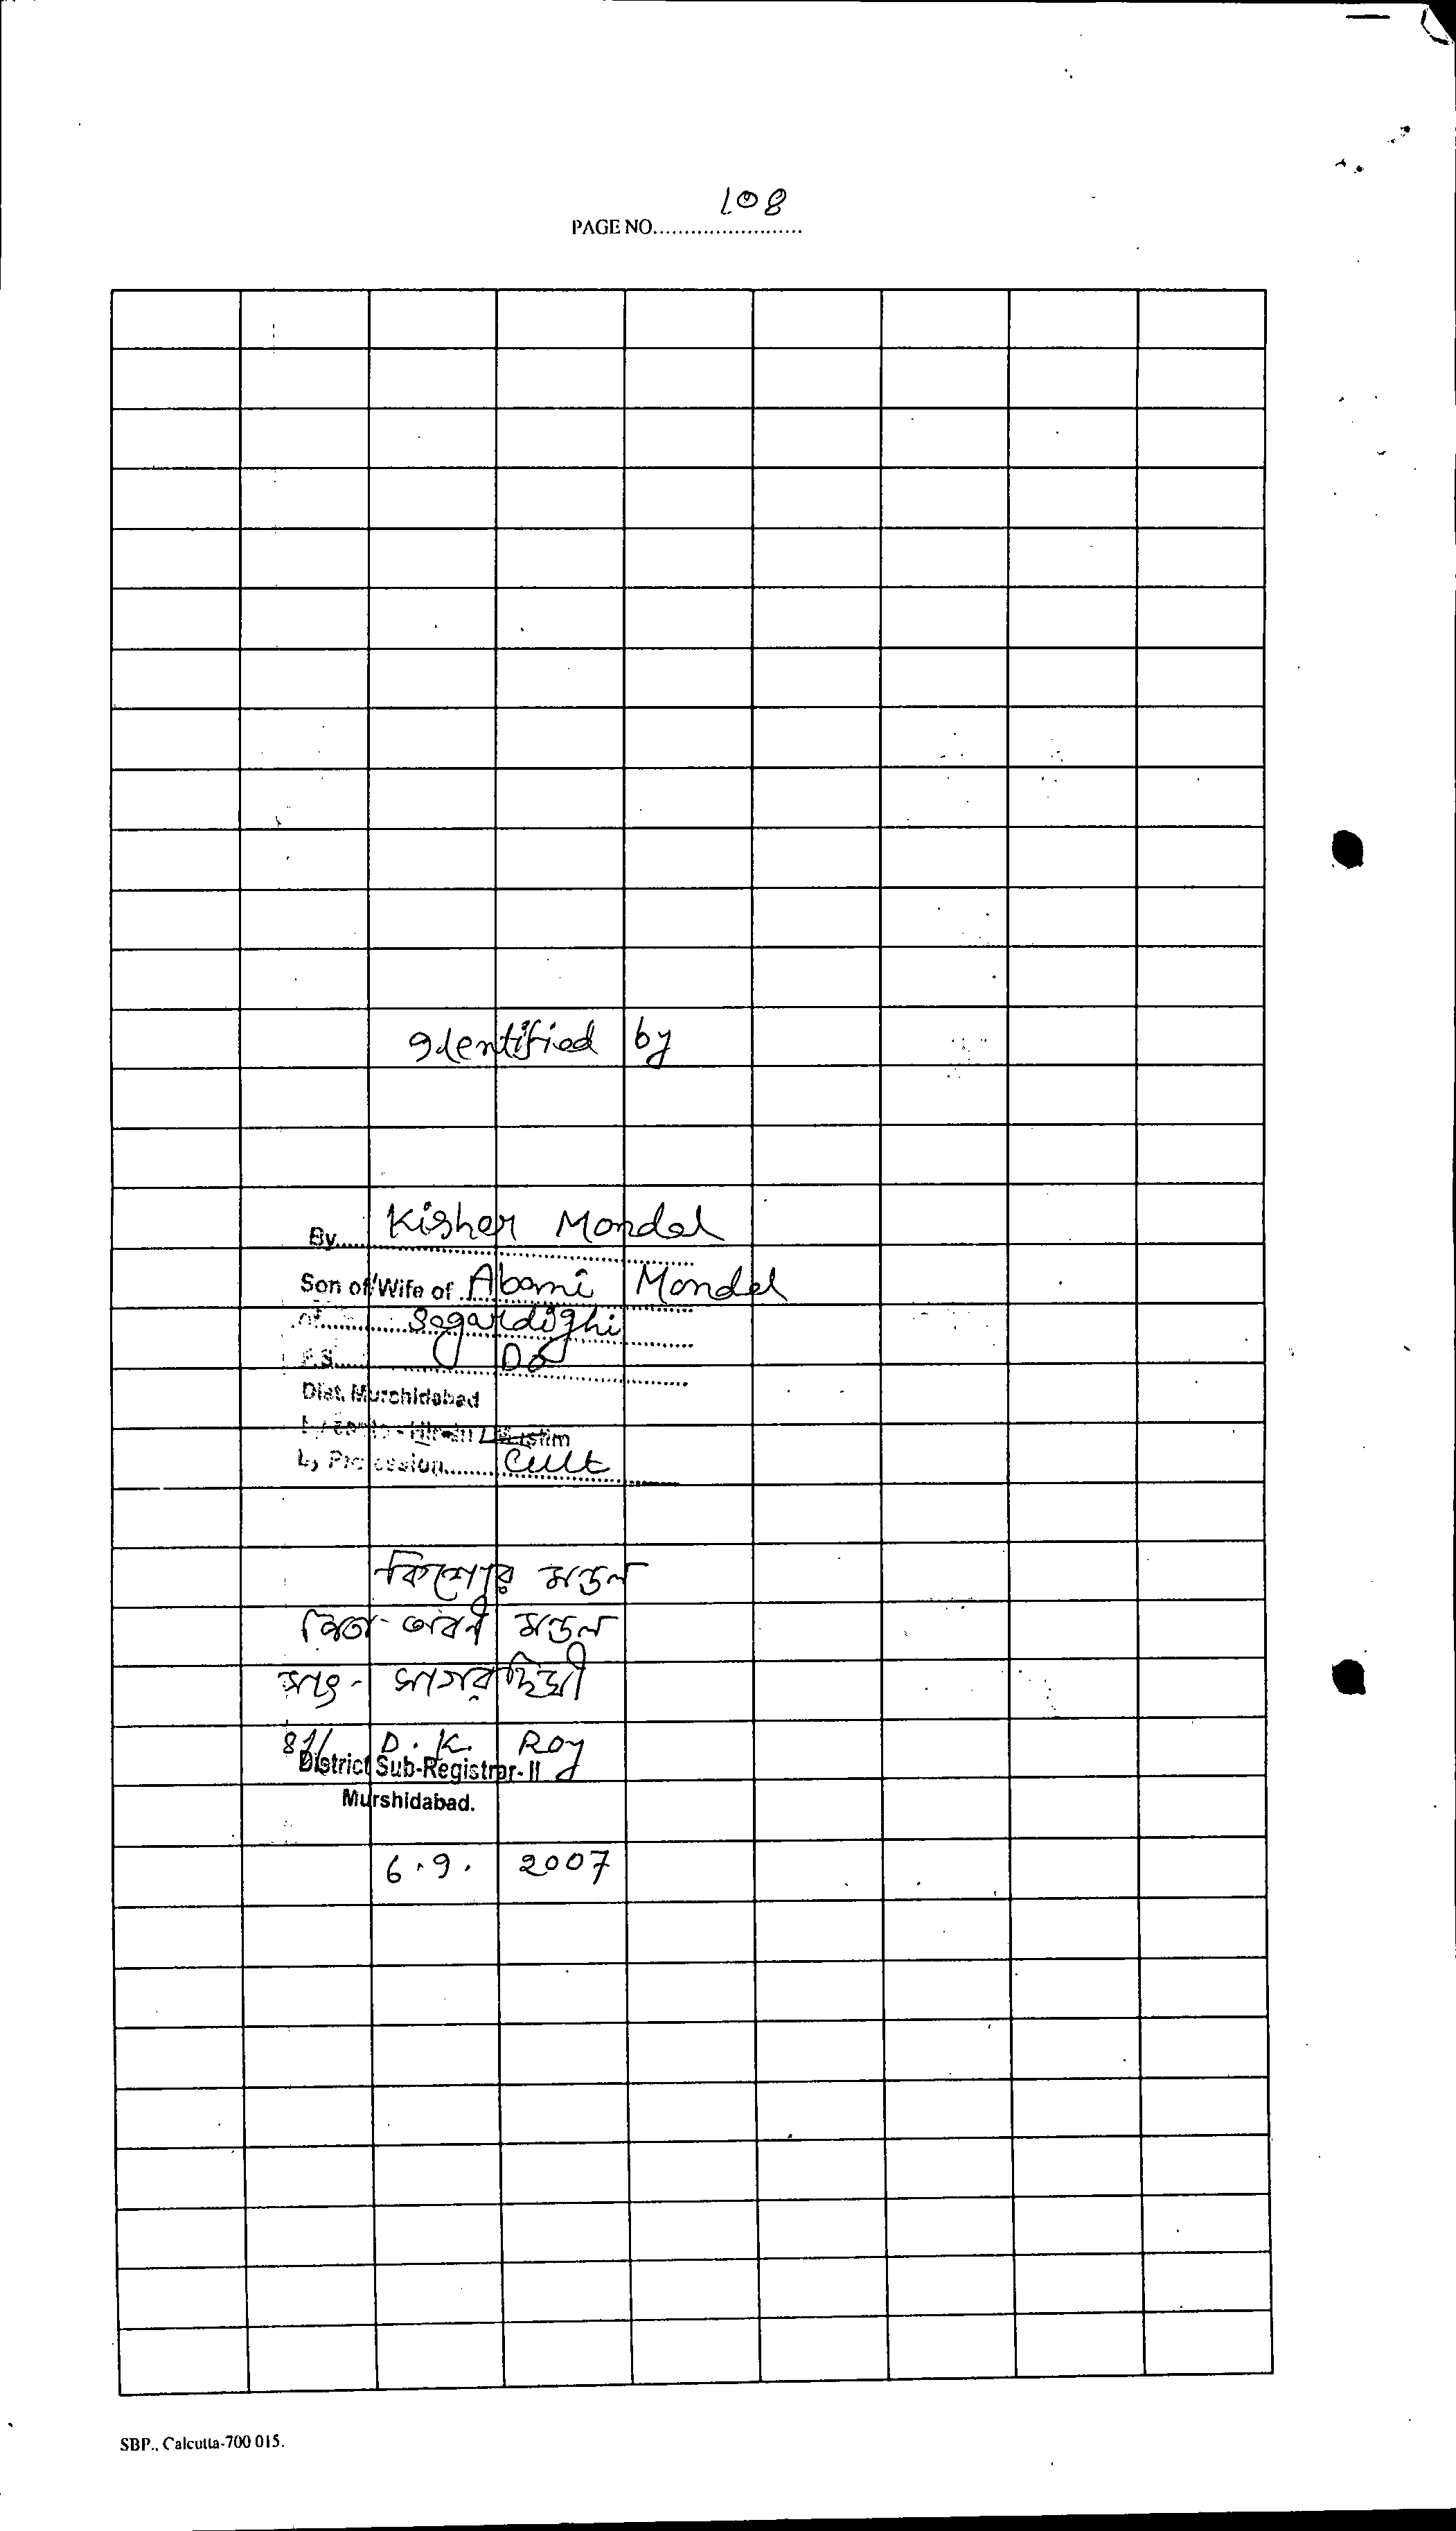 108
PAGE NO........................
Identified by
By..... Kisher Mondal
Son of/Wife of Abani Mondal
of........ Sagardighi
P.S..... Do
Dist. Murshidabad
by Caste - Hindu / Muslim
by Profession........ Cult
কিশোর মন্ডল
পিতা- অবনী মন্ডল
সাং- সাগরদিঘী
D. K. Roy
District Sub-Registrar-II
Murshidabad.
6.9. 2007
SBP., Calcutta-700 015.